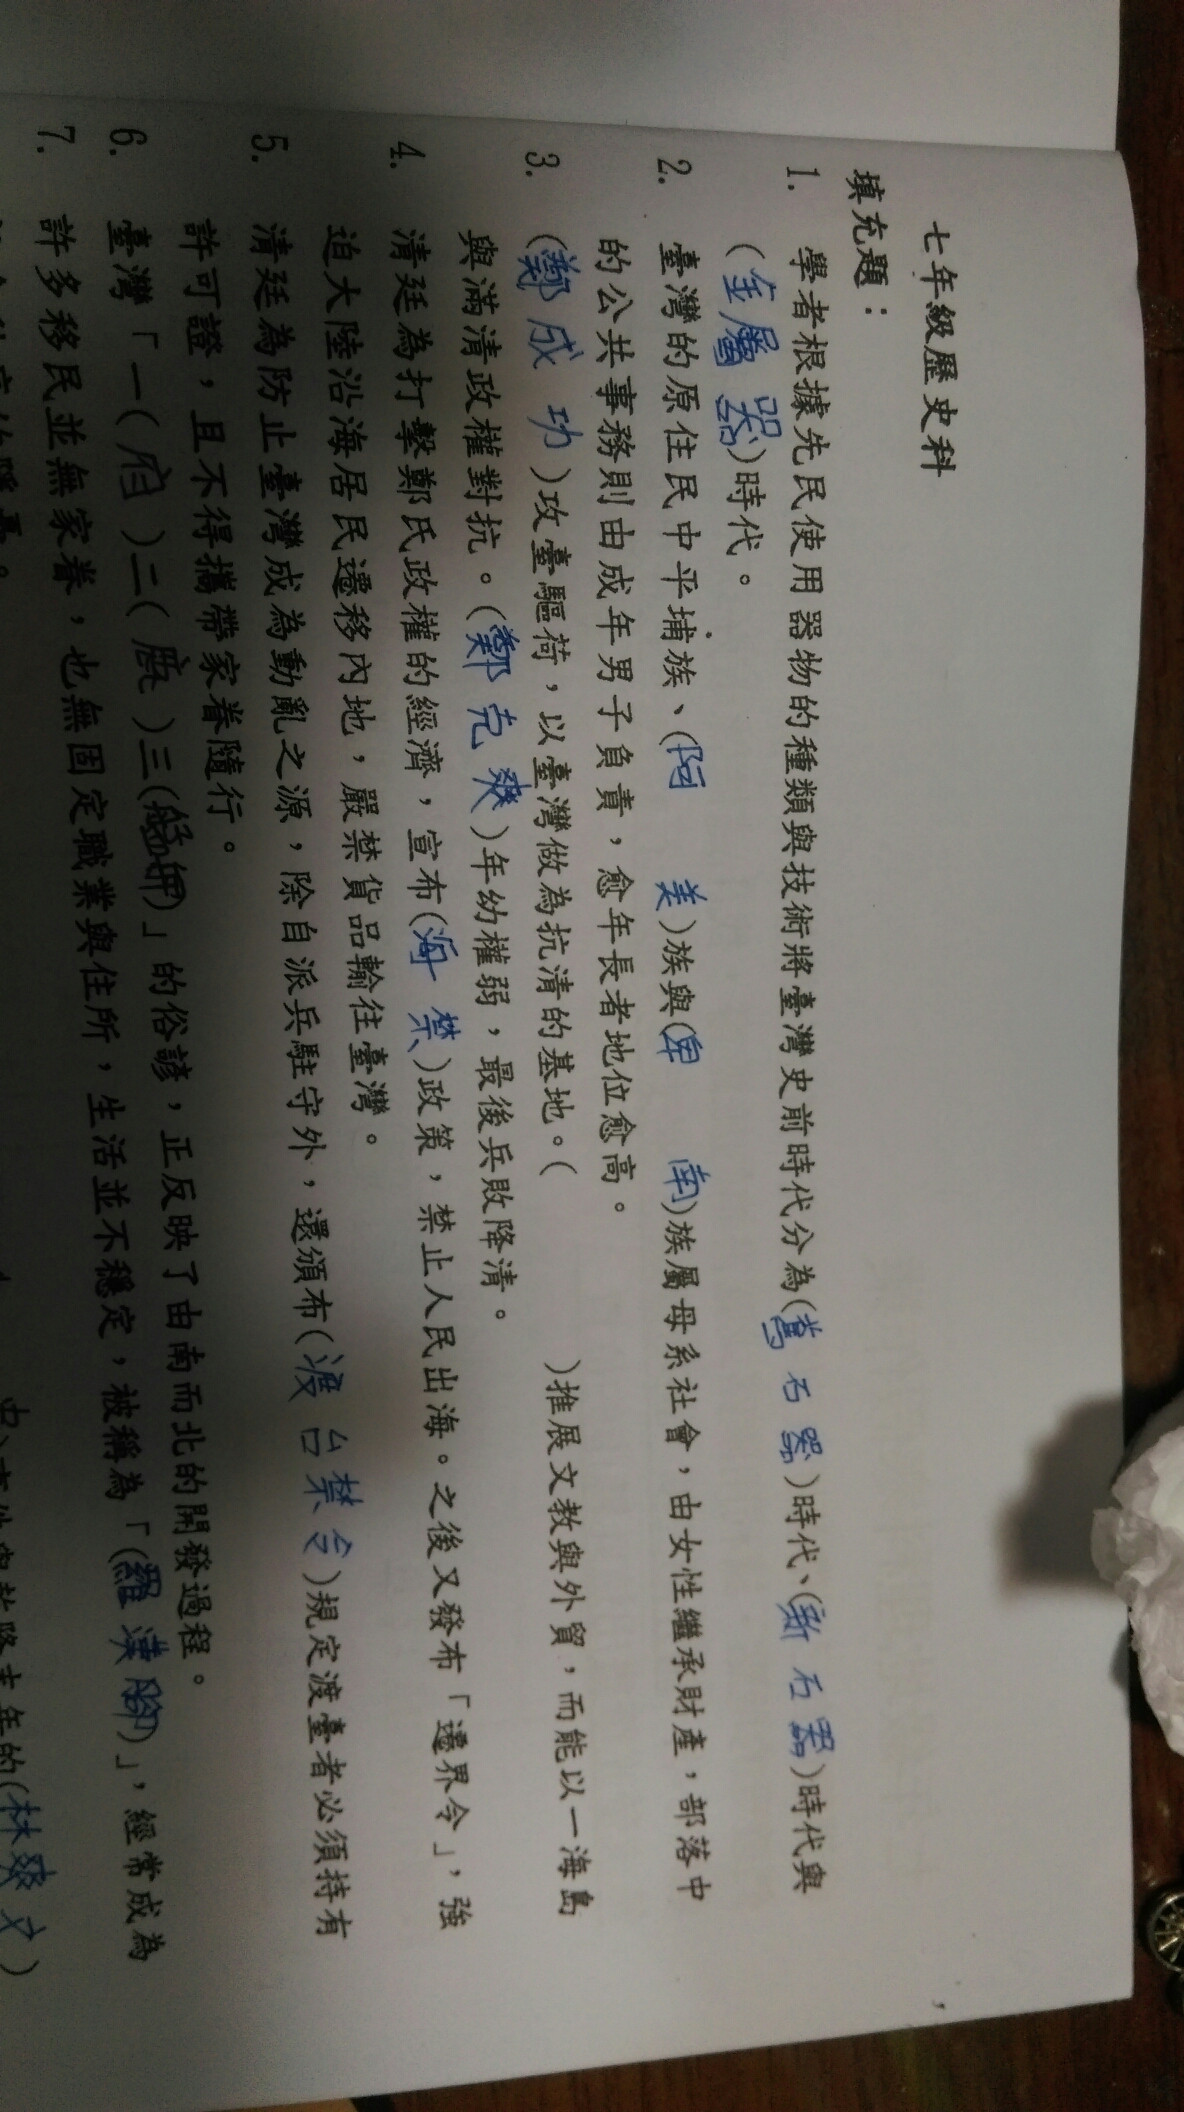 七年級歷史科
填充題：
1. 學者根據先民使用器物的種類與技術將臺灣史前時代分為(舊石器)時代、(新石器)時代與
(金屬器)時代。
2. 臺灣的原住民中平埔族、(阿 美)族與(卑 南)族屬母系社會，由女性繼承財產，部落中
的公共事務則由成年男子負責，愈年長者地位愈高。
3. (鄭成功)攻臺驅荷，以臺灣做為抗清的基地。( )推展文教與外貿，而能以一海島
與滿清政權對抗。(鄭克爽)年幼權弱，最後兵敗降清。
4. 清廷為打擊鄭氏政權的經濟，宣布(海禁)政策，禁止人民出海。之後又發布「遷界令」，強
迫大陸沿海居民遷移內地，嚴禁貨品輸往臺灣。
5. 清廷為防止臺灣成為動亂之源，除自派兵駐守外，還頒布(渡台禁令)規定渡臺者必須持有
許可證，且不得攜帶家眷隨行。
6. 臺灣「一(府)二(鹿)三(艋舺)」的俗諺，正反映了由南而北的開發過程。
7. 許多移民並無家眷，也無固定職業與住所，生活並不穩定，被稱為「(羅漢腳)」，經常成為
年的(林爽文)